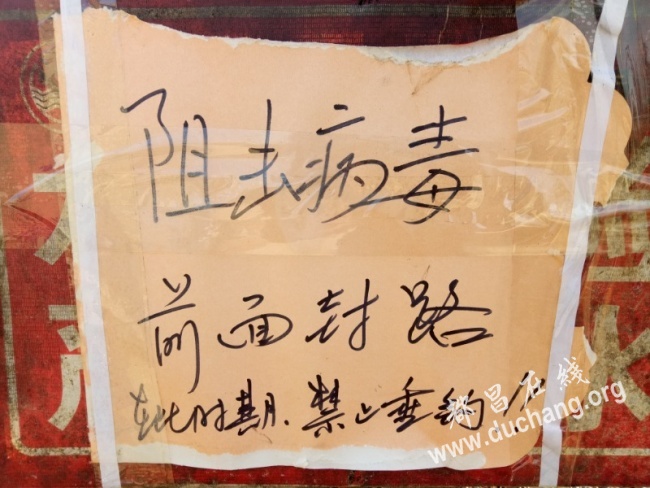 阻击病毒
前面封路
在此时期.禁止垂钓
都昌在线
www.duchang.org